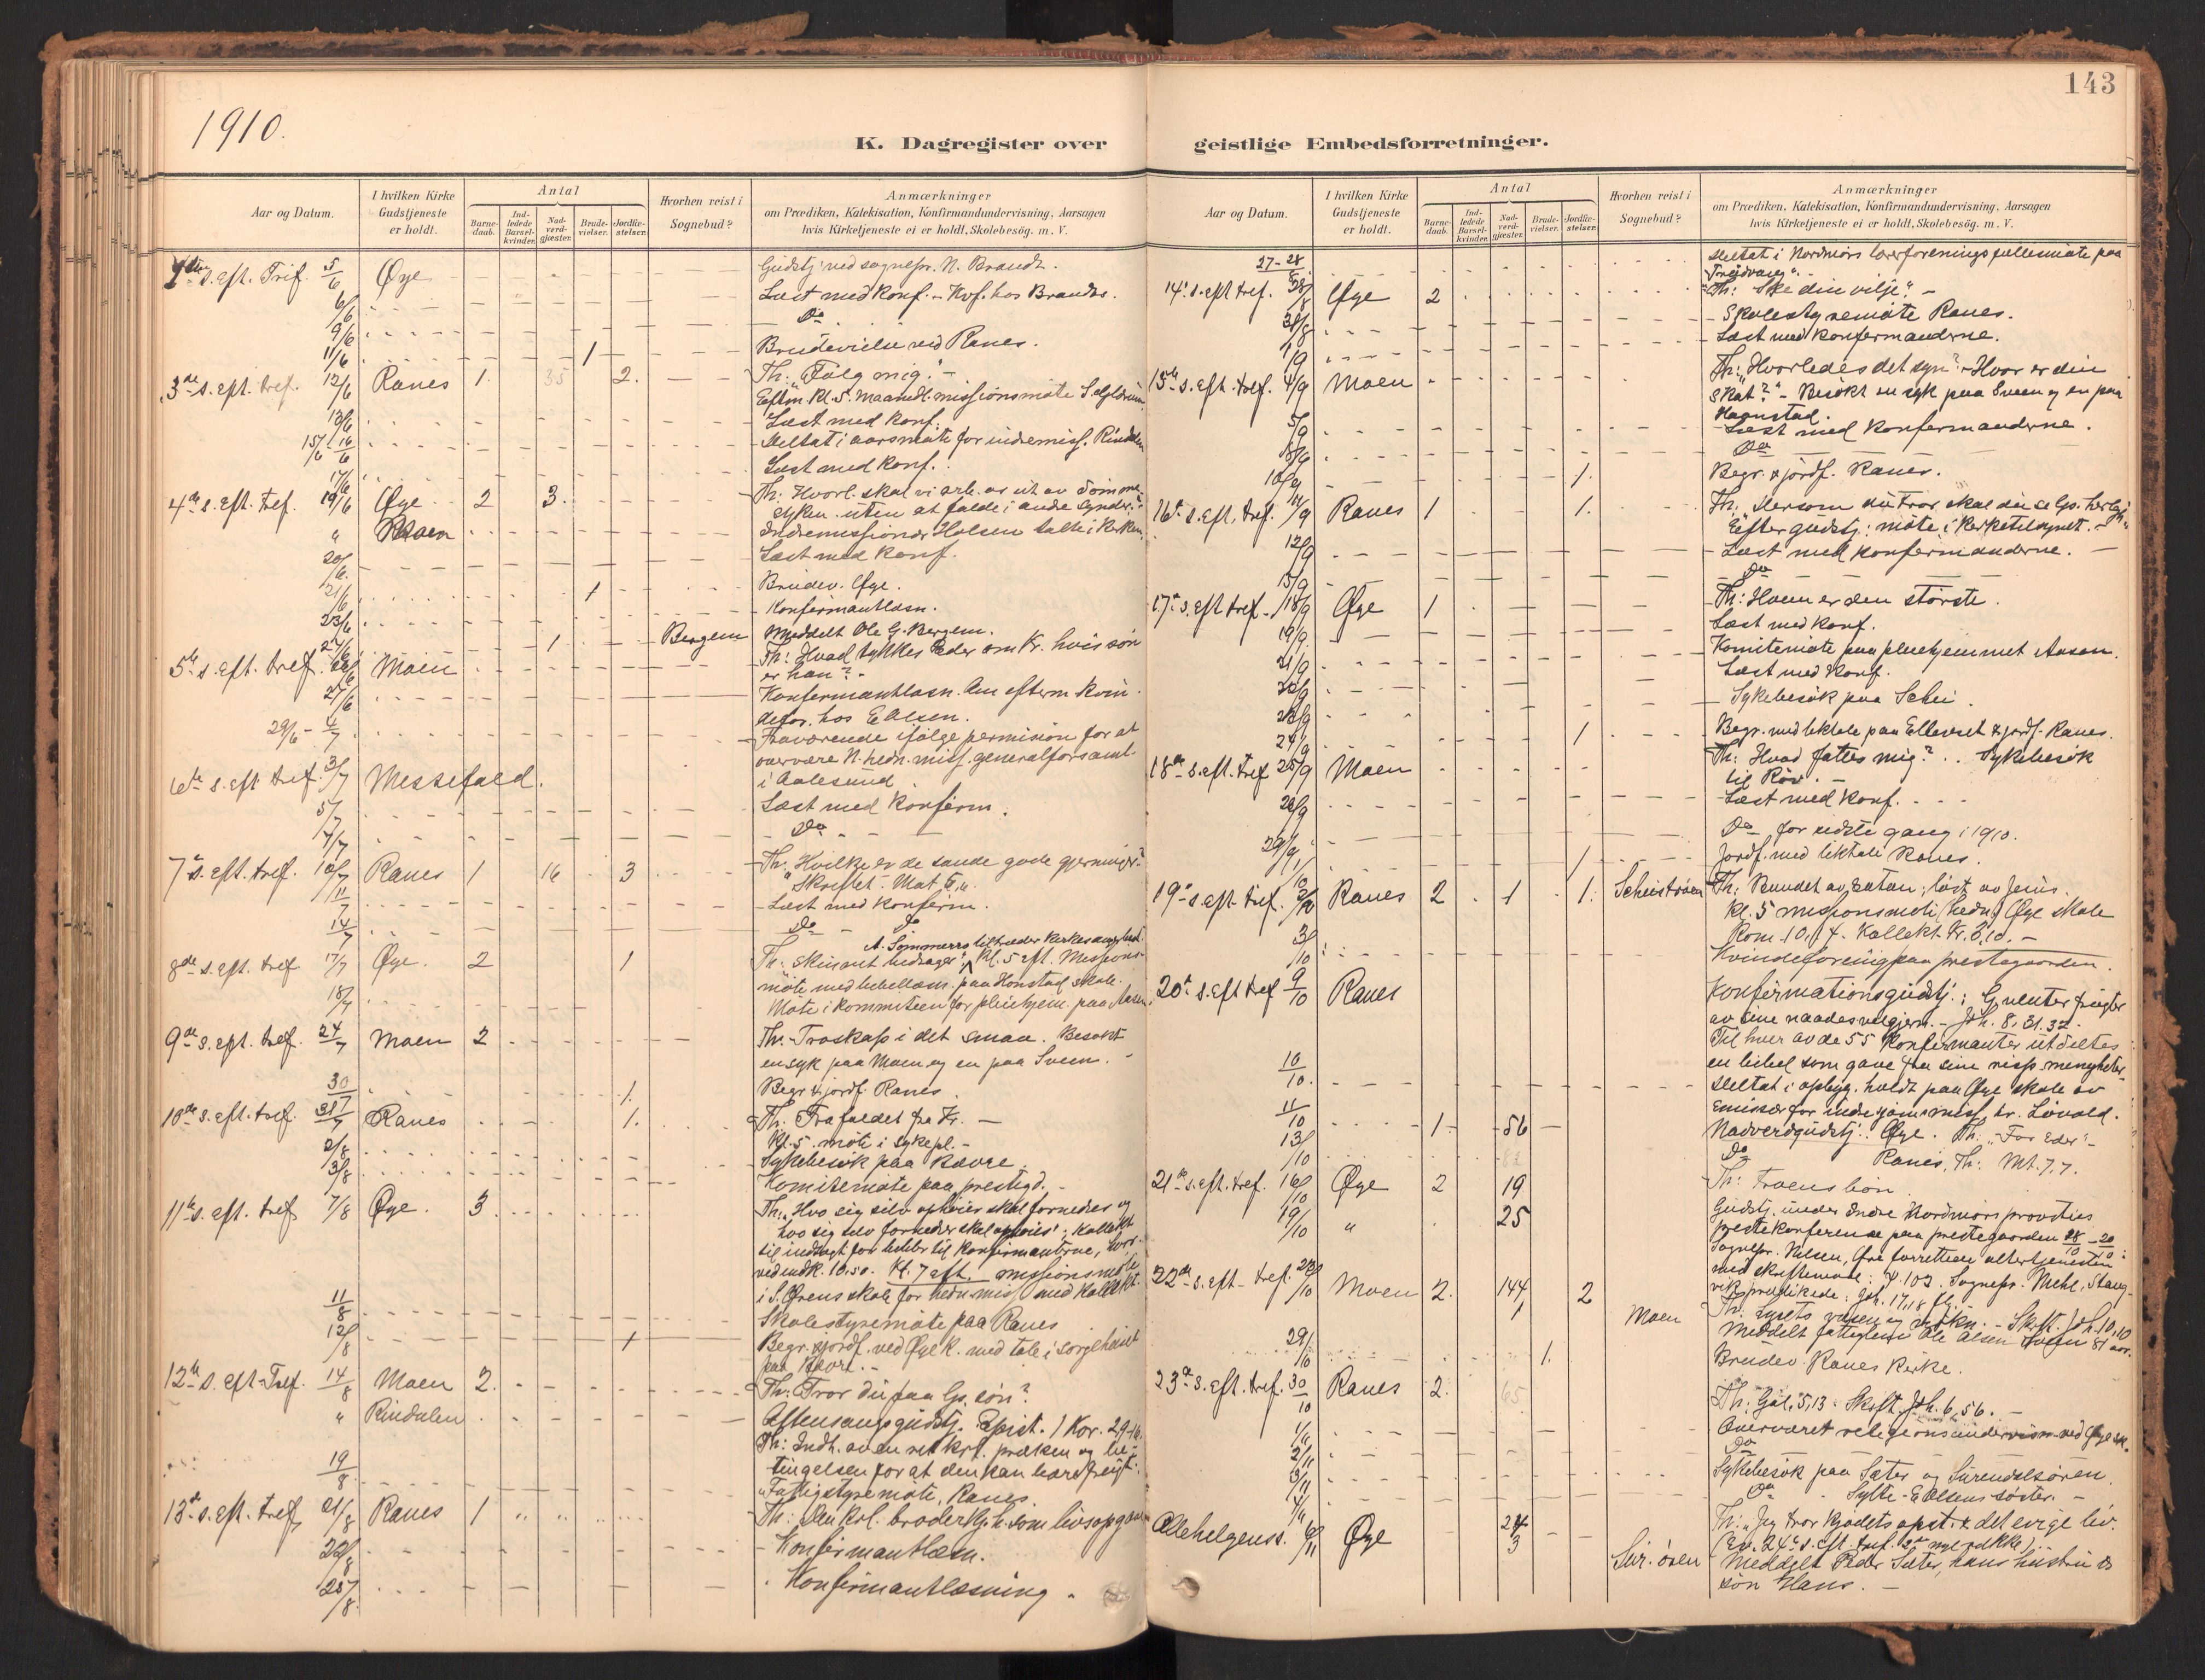 143
1910.
K. Dagregister over geistlige Embedsforretninger.
Aar og Datum.
I hvilken Kirke Gudstjeneste er holdt.
Antal
Barnedaab.
Indledede Barselkvinder.
Nadverdgjæster.
Brudevielser.
Jordfæstelser.
Hvorhen reist i Sognebud?
Anmærkninger
om Prædiken, Katekisation, Konfirmandundervisning, Aarsagen
hvis Kirketjeneste ei er holdt, Skolebesög. m. V.
s. eft. Trif. 5/6 Øye Gudstj. ved sognepr. N. Brandt.
6/6 Læst med konf. - Kvf. hos Brandts.
9/6 Do
11/6 1 Brudevielse ved Ranes.
3de s. eft. tref. 12/6 Ranes 1. 35 2. Th: "Følg mig". -
Eftm. kl. 5. maanedl. missionsmøte
13/6 Læst med konf.
15/6 - 16/6 Deltat i aarsmøte for indremiss. Rindalen
17/6 Læst med konf.
4de s. eft. tref. 19/6 Øye 2 3. Th: Hvorl. skal vi arb. os ut av dømme-
syken uten at falde i andre synder?
" Moen Indremissionær Holsen talte i kirken.
20/6. Læst med konf.
21/6 1 Brudev. Øye.
23/6 Konfirmantlæsn.
24/6 1 Bergem Meddelt Ole G. Bergem.
5te s. eft. tref. 26/6 Moen Th: Hvad tykkes Eder om Kr. hvis søn
er han? -
27/6 Konfirmantlæsn. Om efterm. kvin-
defor. hos E. Olsen.
29/6 - 4/7 Fraværende ifølge permision for at
overvære N. hedn. miss. generalforsaml.
i Aalesund
6te s. eft. tref. 3/7 Messefald.
5/7 Læst med konfirm.
7/7 Do
7de s. eft. tref. 10/7 Ranes 1 16 3 Th: Hvilke er de sande gode gjerninger?
"Skriftet. Mat. 5,6.
11/7 Læst med konfirm.
14/7 Do Do
8de s. eft. tref. 17/7 Øye. 2 1 A. Sommerro tiltræder kirkesanger best.
Th: Skinnet bedrager. Kl. 5 eft. Missions-
møte med bibellæsn. paa Honstad skole.
18/7 Møte i kommiteen for pleiehjem. paa Aasen.
9de s. eft. tref. 24/7 Moen 2 Th: Troskap i det smaa. Besøkt
en syk paa Moen og en paa Sveen. -
30/7 1. Begr. & jordf. Ranes
10de s. eft. tref. 31/7 Ranes 1. Th: Frafaldet fra Kr. -
Kl. 5. møte i sykepl. -
2/8 Sykebesøk paa Kavre
3/8 Komitemøte paa prestegd. -
11te s. eft. tref. 7/8 Øye. 3 Th: "Hvo sig selv ophøier skal fornedres og
hvo sig selv fornedrer skal ophøies". Kollekt
til indkjøp for bibler til konfirmanterne, hvor-
ved indk. 10.50. Kl. 7 eft. missionsmøte
i S. Ørens skole for hedn. miss. med kollekt.
11/8 Skolestyremøte paa Ranes
12/8 1 Begr. & jordf. ved Øye k. med tale i sørgehuset
paa Kavre. -
12te s. eft. Tref. 14/8 Moen 2. Th: Tror du paa Gs. søn?
" Rindalen Aftensangsgudstj. Epist. 1 Kor. 2,9-16.
Th: Indh. av en ret krl. præken og be-
tingelsen for at den kan bære frugt.
19/8 Fattigstyremøte, Ranes.
13de s. eft. tref. 21/8 Ranes 1 Th: Den krl. broderkjh. som livsopgave
22/8 Konfirmantlæsn.
25/8 Konfirmantlæsning.
Aar og Datum.
I hvilken Kirke Gudstjeneste er holdt.
Antal
Barnedaab.
Indledede Barselkvinder.
Nadverdgjæster.
Brudevielser.
Jordfæstelser.
Hvorhen reist i Sognebud?
Anmærkninger
om Prædiken, Katekisation, Konfirmandundervisning, Aarsagen
hvis Kirketjeneste ei er holdt, Skolebesög. m. V.
27-28/8 Deltat i Nordmørs lærerforenings fællesmøte paa
14de s. eft. tref. 28/8 Øye 2 Th: "Ske din vilje". -
31/8 Skolestyremøte Ranes.
1/9 Læst med konfermanderne.
15de s. eft. tref. 4/9 Moen Th: "Hvorledes det syn? - Hvor er din
Skat?" - Besøkt en syk paa Sveen og en paa
Haanstad.
5/9 Læst med konfermanderne.
8/9 Do
10/9 1. Begr. & jordf. Ranes.
16de s. eft. tref. 11/9 Ranes 1 1. Th: Dersom du tror skal du se Gs. herligh.
Efter gudstj: møte i kirketilsynet. -
12/9 Læst med konfermanderne. -
15/9 Do
17de s. eft. tref. 18/9 Øye 1 Th: Hvem er den største.
19/9 Læst med konf.
21/9 Komitemøte paa pleiehjemmet Aasen.
22/9 Læst med konf.
23/9 Sykebesøk paa Schei.
24/9 1 Begr. med liktale paa Elleveset & jordf. Ranes.
18de s. eft. tref. 25/9 Moen Th: Hvad fattes mig? . . Sykebesøk
til Røv. -
26/9 Læst med konf. - - -
29/9 Do for sidste gang i 1910.
1/10 1 Jordf. med liktale Ranes.
19de s. eft. tref. 2/10 Ranes 2 1 1. Scheistrøen Th: Bundet av Satan; løst av Jesus.
Kl. 5 missionsmøte (hedn.) Øye skole
Rom. 10, 14. Kollekt. Kr. 8,10. -
3/10 Kvindeforening paa prestegaarden.
20de s. eft. tref. 9/10 Ranes Konfirmationsgudstj.: G. venter frugter
av sine naadesvelgjern. - Joh. 8, 31.32.
Til hver av de 55 konfermanter utdeltes
en bibel som gave fra sine resp. menigheter.
10/10. Deltat i opbyg. holdt paa Øye skole av
Emissær for indre hr. Løvold.
11/10 1 56 Nadverdgudstj.: Øye. Th: "For Eder" -
13/10 Do Ranes, Th: Mt. 7,7.
21de s. eft. tref. 16/10 Øye 2 19 Th: Troens bøn
19/10 " 25 Gudstj. under Indre Nordmørs provsties
prestekonferense paa prestegaarden 18/10 - 20/10:
Sognepr. Nilsen, Øre forrettede altertjenesten
med skriftemaal: Ψ 103. Sognepr. Mehl, Stang-
vik prædikede: Joh. 17,18 flg.
22de s. eft. tref. 23/10 Moen 2. 144 2 Th: Lysets væsen og virkn. - Skrift. Joh. 10,10
1 Moen Meddelt fattiglem Ole Olsen Sveen 81 aar.
29/10 1. Brudev. Ranes Kirke.
23de s. eft. tref. 30/10 Ranes 2. 65 Th: Gal. 5,13. Skrift. Joh. 6,56. -
1/11 Overværet religionsundervisn. ved Øye sk.
2/11 Do
3/11 Sykebesøk paa Sæter og Surendalsøren.
4/11 Do Sylte - E. Olsens søster. -
Allehelgenss. 6/11 Øye 24 Th: "Jeg tror kjødets opst. & det evige liv.
(Ev. 24de s. eft. tref. 2den nye rekke).
3 Sur. øren Meddelt Peder Sæter, hans hustru &
søn Hans. -